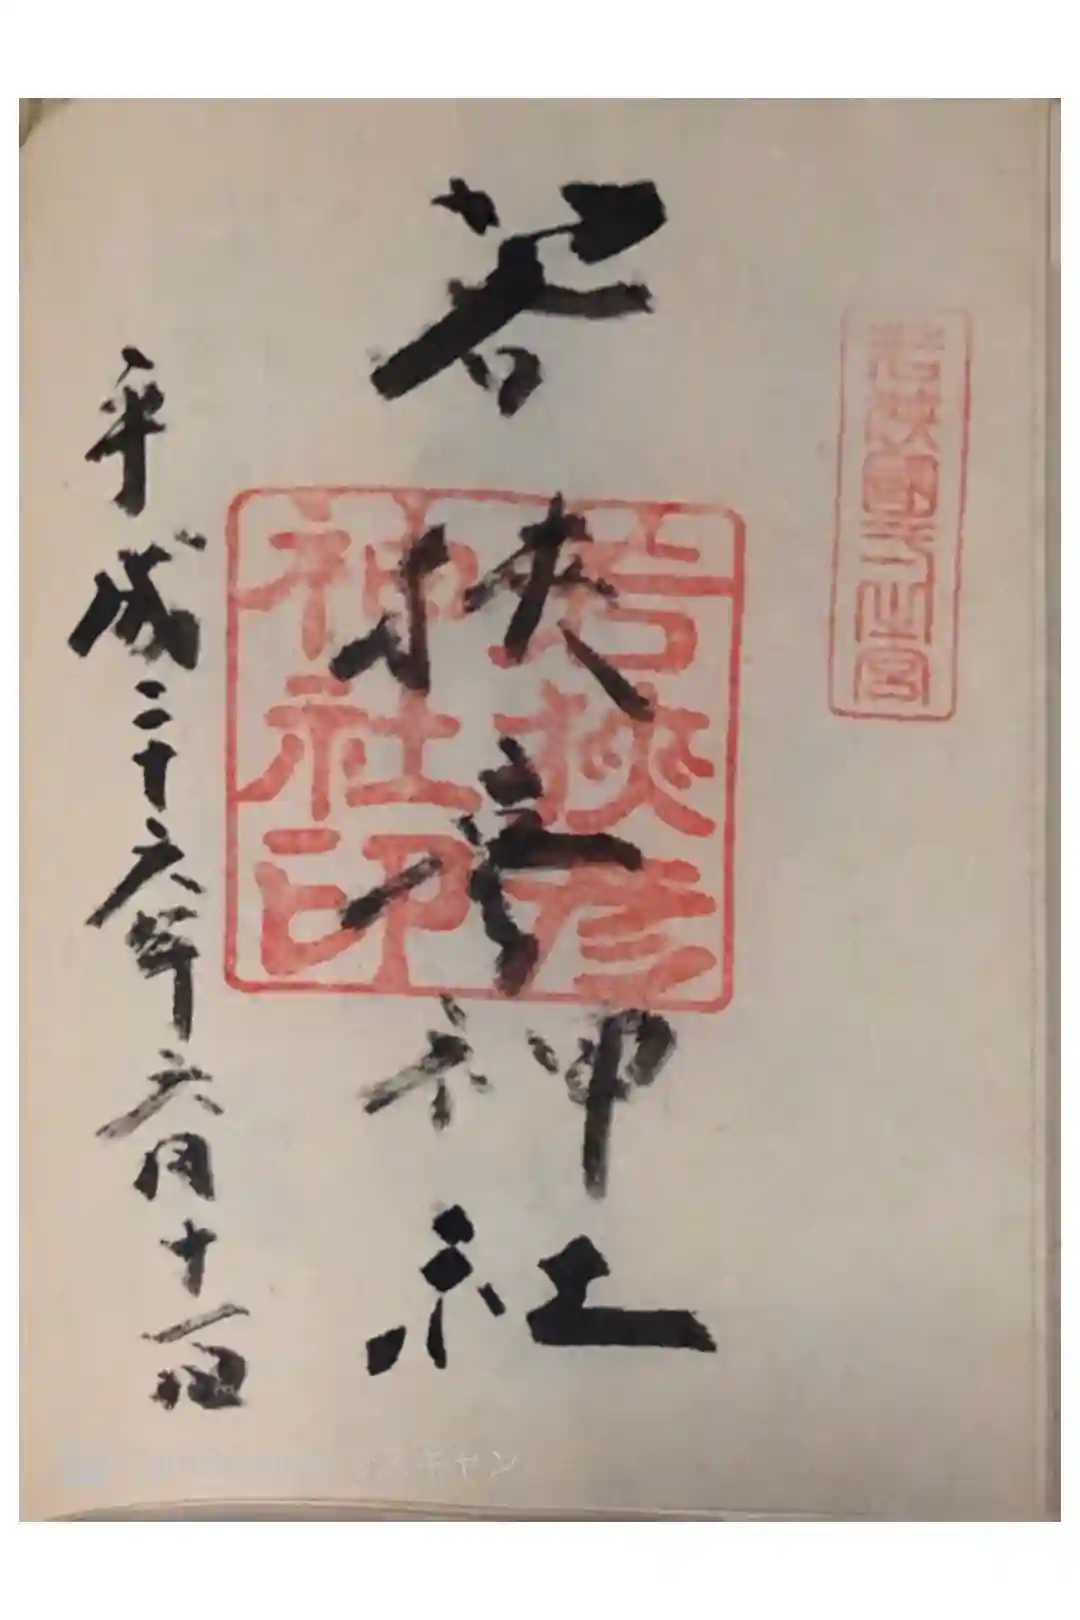 若狭國一之宮
若狭彦神社
若狭彦
神社印
平成二十六年六月十一日
スキャン